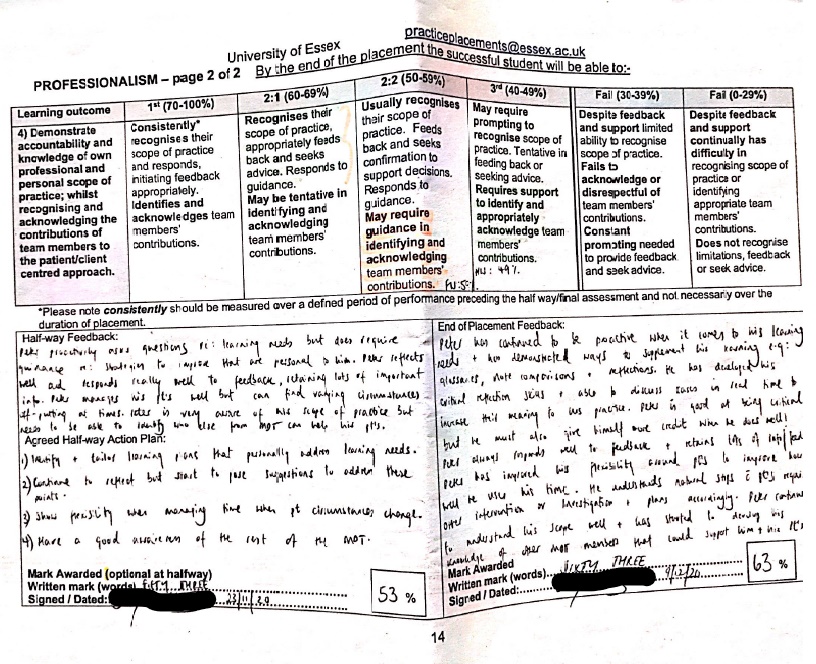 practiceplacements@essex.ac.uk
University of Essex
PROFESSIONALISM – page 2 of 2 By the end of the placement the successful student will be able to:-
Learning outcome
4) Demonstrate
accountability and
knowledge of own
professional and
personal scope of
practice; whilst
recognising and
acknowledging the
contributions of
team members to
the patient/client
centred approach.
1st (70-100%)
Consistently*
recognises their
scope of practice
and responds,
initiating feedback
appropriately.
Identifies and
acknowledges team
members'
contributions.
2:1 (60-69%)
Recognises their
scope of practice,
appropriately feeds
back and seeks
advice. Responds to
guidance.
May be tentative in
identifying and
acknowledging
team members'
contributions.
2:2 (50-59%)
Usually recognises
their scope of
practice. Feeds
back and seeks
confirmation to
support decisions.
Responds to
guidance.
May require
guidance in
identifying and
acknowledging
team members'
contributions.
3rd (40-49%)
May require
prompting to
recognise scope of
practice. Tentative in
feeding back or
seeking advice.
Requires support
to identify and
appropriately
acknowledge team
members'
contributions.
49%
Fail (30-39%)
Despite feedback
and support limited
ability to recognise
scope of practice.
Fails to
acknowledge or
disrespectful of
team members'
contributions.
Constant
prompting needed
to provide feedback
and seek advice.
Fail (0-29%)
Despite feedback
and support
continually has
difficulty in
recognising scope of
practice or
identifying
appropriate team
members'
contributions.
Does not recognise
limitations, feedback
or seek advice.
*Please note consistently should be measured over a defined period of performance preceding the half way/final assessment and not necessarily over the
duration of placement.
Half-way Feedback:
Peter proactively asks questions re: learning needs but does require
guidance re: strategies to improve that are personal to him. Peter reflects
well and responds really well to feedback, retaining lots of important
info. Peter manages his pts well but can find varying circumstances
off-putting at times. Peter is very aware of his scope of practice but
needs to be able to identify who else from MDT can help his pts.
Agreed Half-way Action Plan:
1) Identify + tailor learning plans that personally address learning needs.
2) Continue to reflect but start to pose suggestions to address these
points.
3) Show flexibility when managing time when pt circumstances change.
4) Have a good awareness of the rest of the MDT.
Mark Awarded (optional at halfway)
Written mark (words) FIFTY THREE
Signed / Dated: 23/11/20
53 %
End of Placement Feedback:
Peter has continued to be proactive when it comes to his learning
needs + has demonstrated ways to supplement his learning e.g:
glossaries, note comparisons + reflections. He has developed his
critical reflection skills + able to discuss cases in real time to
increase their meaning to his practice. Peter is good at being critical
but he must also give himself more credit when he does well!
Peter always responds well to feedback + retains lots of info/feed
Peter has improved his flexibility around pts to improve how
well he uses his time. He understands natural steps
other intervention or investigation + plans accordingly. Peter continues
to understand his scope well + has started to develop his
knowledge of other MDT members that could support him + his pt's
Mark Awarded
Written mark (words) SIXTY THREE
Signed / Dated: 9/12/20
63 %
14